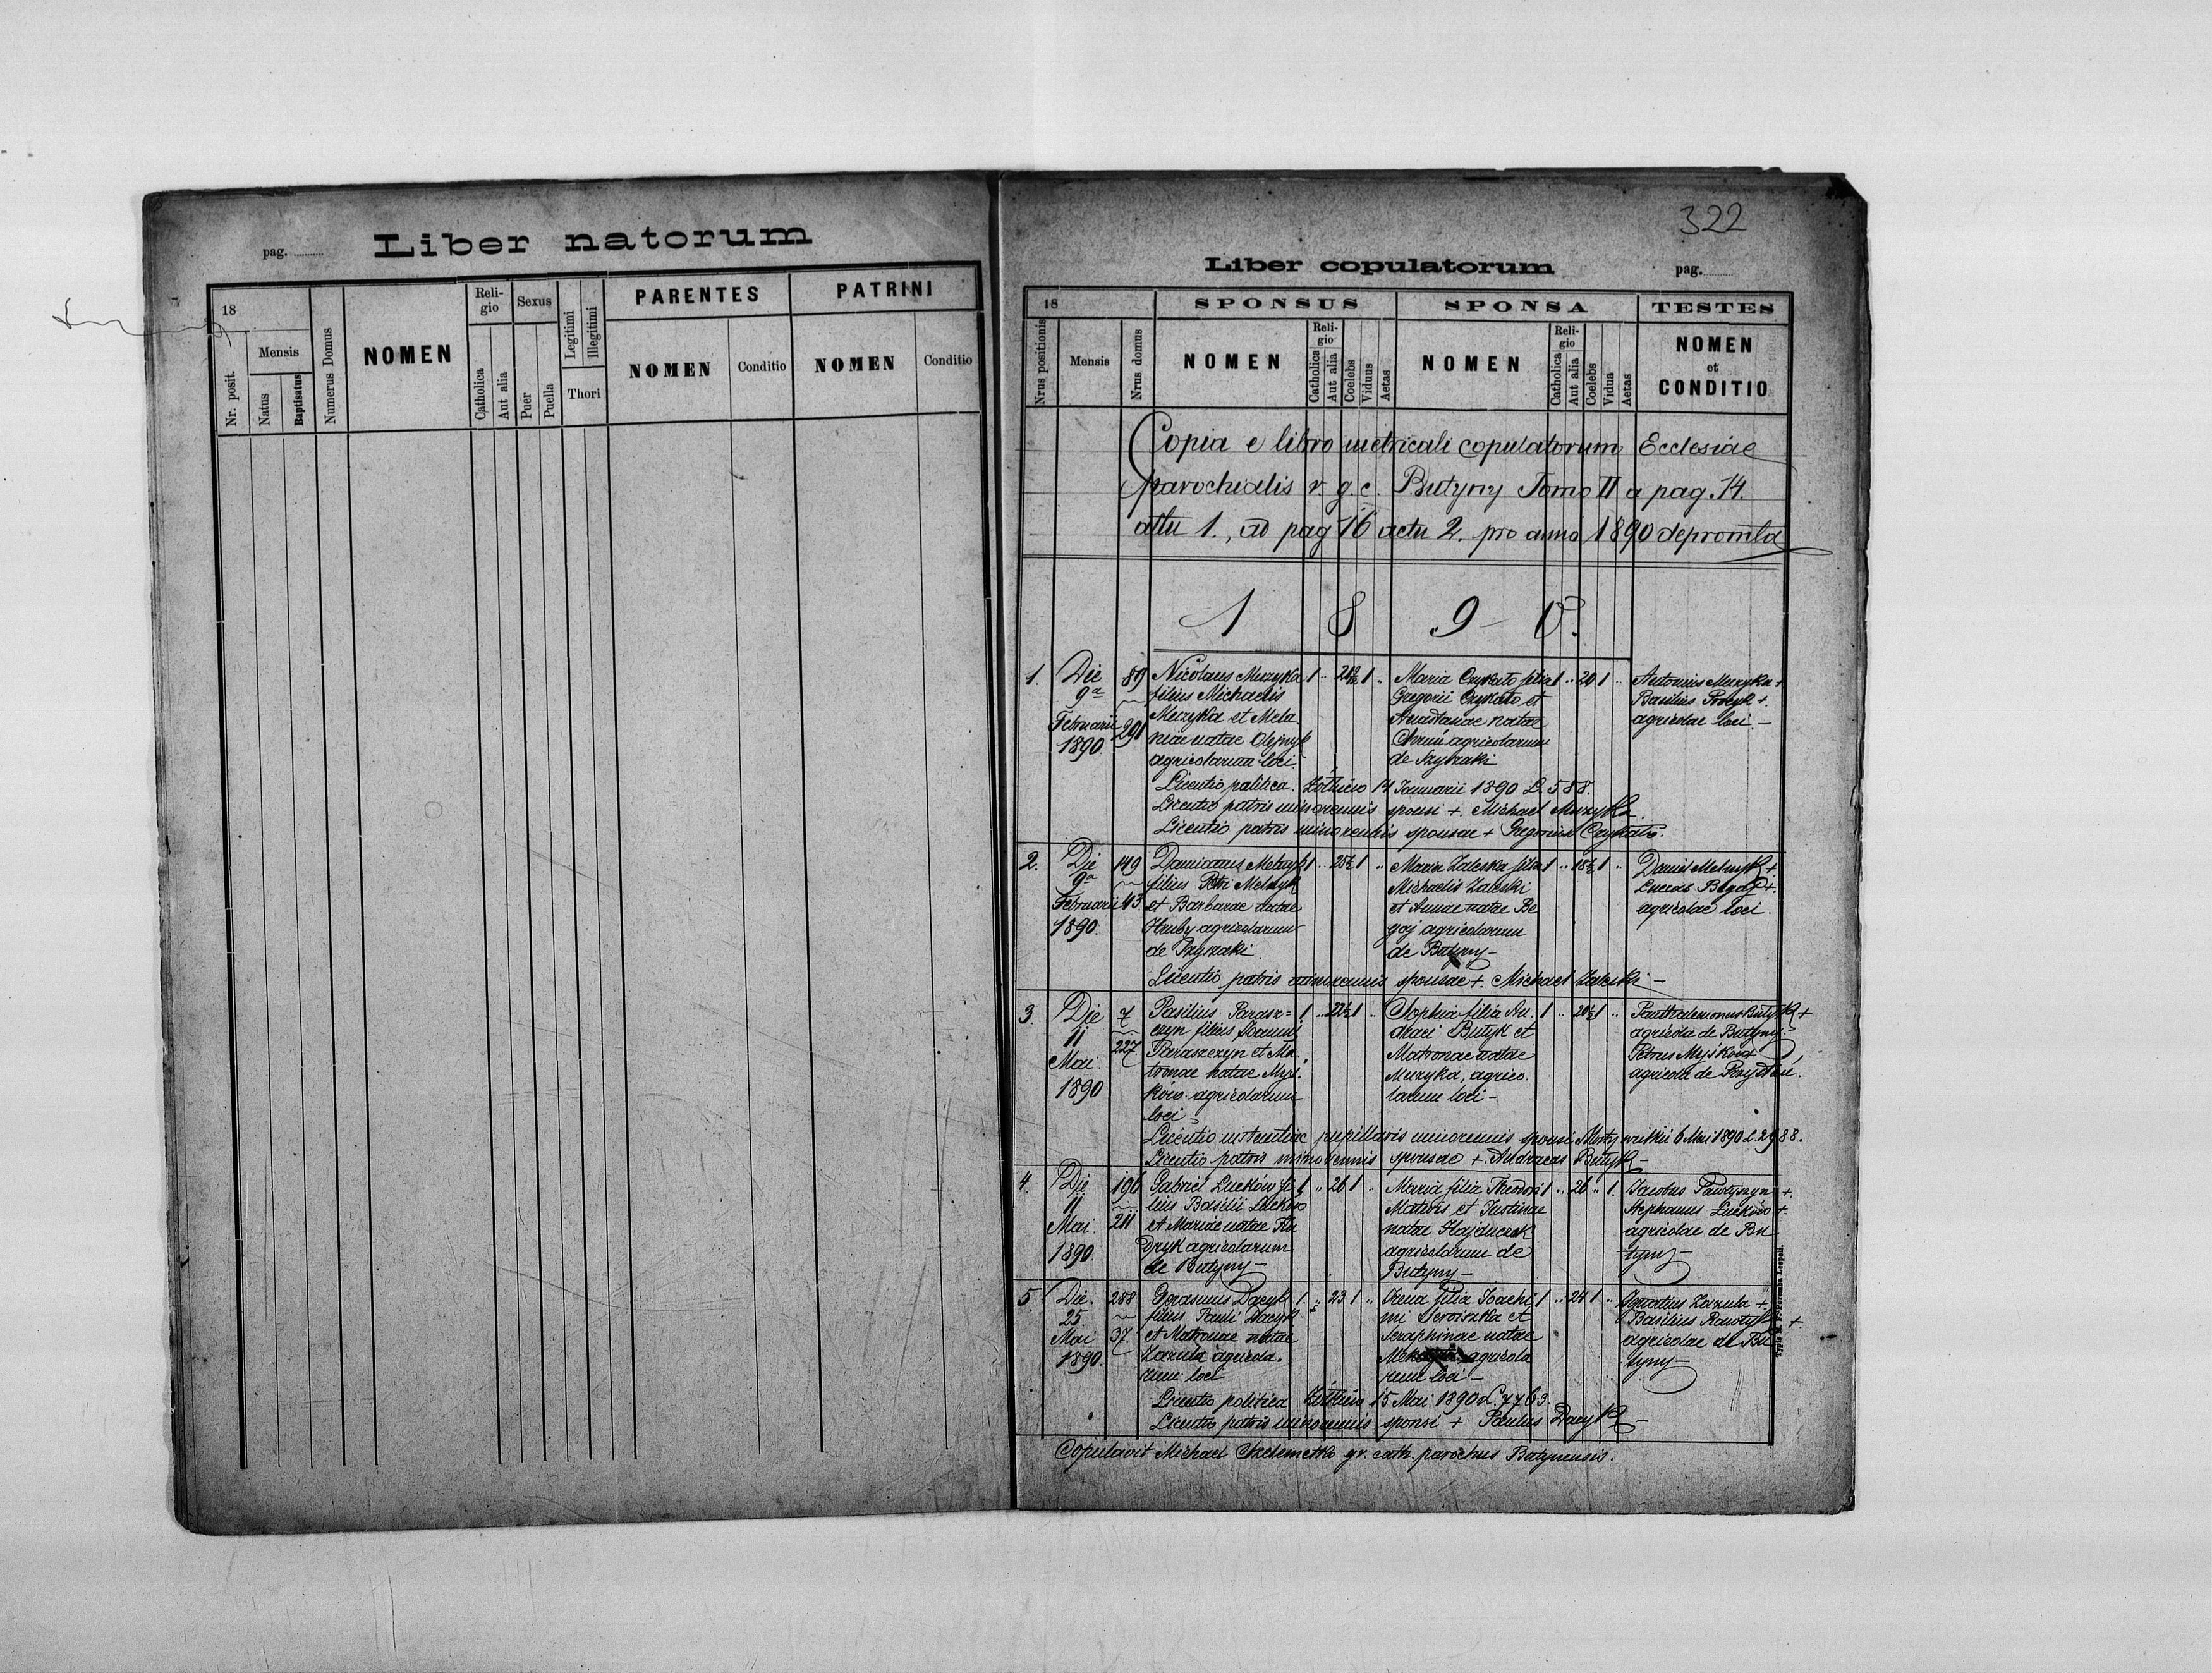 pag.
Liber natorum
18
Nr. posit.
Mensis
Natus
Baptisatus
Numerus Domus
NOMEN
Religio
Catholica
Aut alia
Sexus
Puer
Puella
Legitimi
Illegitimi
Thori
PARENTES
NOMEN
Conditio
PATRINI
NOMEN
Conditio
322
Liber copulatorum
pag.
18
Nrus positionis
Mensis
Nrus domus
SPONSUS
NOMEN
Religio
Catholica
Aut alia
Coelebs
Viduus
Aetas
SPONSA
NOMEN
Religio
Catholica
Aut alia
Coelebs
Vidua
Aetas
TESTES
NOMEN
et
CONDITIO
Copia e libro metricali copulatorum Ecclesiae
parochialis r. g. c. Butyny Tomo II a pag. 14.
actu 1., ad pag 16 actu 2. pro anno 1890 deprompta
1 8 9 0.
1.
Die
9a
Februarii
1890
89
291
Nicolaus Muzyka
filius Michaelis
Muzyka et Mela
niae natae Olejnyk
agricolarum loci
1 1
Maria Czykało filia
Gregorii Czykało et
Anastasiae natae
agricolarum
de
1 20 1
Antonius Muzyka +
Basilius +
agricolae loci –
Licentio politica Żółkiew 14 Januarii 1890 L. 588.
Licentio patris minorennis sponsi + Michael Muzyka
Licentio patris minorennis sponsae + Gregorius Czykało.
2.
Die
9a
Februarii
1890.
149
43.
Damianus Melnyk
filius Petri Melnyk
et Barbarae natae
Hruby agricolarum
de
1 25½ 1
Maria Zaleska filia
Michaelis Zaleski
et Annae natae Be
gaj agricolarum
de Butyny –
1 18½ 1
Daniel Melnyk +
Lucas Begaj +
agricolae loci.
Licentio patris minorennis sponsae + Michael Zaleski –
3.
Die
11
Mai
1890
7
227
Basilius Parasz=
czyn filius Joannis
Paraszczyn et Ma
tronae natae Myś
ków agricolarum
loci –
1 22½ 1
Sophia filia An
dreaei Butyk et
Matronae natae
Muzyka, agrico
larum loci –
1 20½ 1
Butyk +
agricola de Butyny
Petrus Myśków +
agricola de Przystań.
Licentio instantiae pupillaris minorennis sponsi Mosty wielkie 6 Mai 1890 L 2988.
Licentio patris minorennis sponsae + Andreas Butyk –
4.
Die
11
Mai
1890.
196
211
Gabriel Lucków fi
lius Basilii Luckow
et Mariae natae Ku
dryk agricolarum
de Butyny –
1 26 1
Maria filia Theodori
et Justinae
natae Hajduczek
agricolarum de
Butyny –
1 26 1.
Jacobus Pawłyszyn +
Stephanus Luckow +
agricolae de Bu
tyny –
5
Die
25
Mai
1890.
288
37.
Gerasimus Dacyk
filius Pauli Dacyk
et Matronae natae
Zazula agricola
rum loci
1. 23 1
Irena filia Joachi
mi Seroiszka et
Seraphinae natae
agricola
rum loci –
1 24 1
Ignatius Zazula +
Basilius +
agricolae de Bu
tyny –
Licentio politica Żółkiew 15 Mai 1890 L. 7763.
Licentio patris minorennis sponsi + Paulus Dacyk –
Copulavit Michael gr. cath. parochus Butynensis.